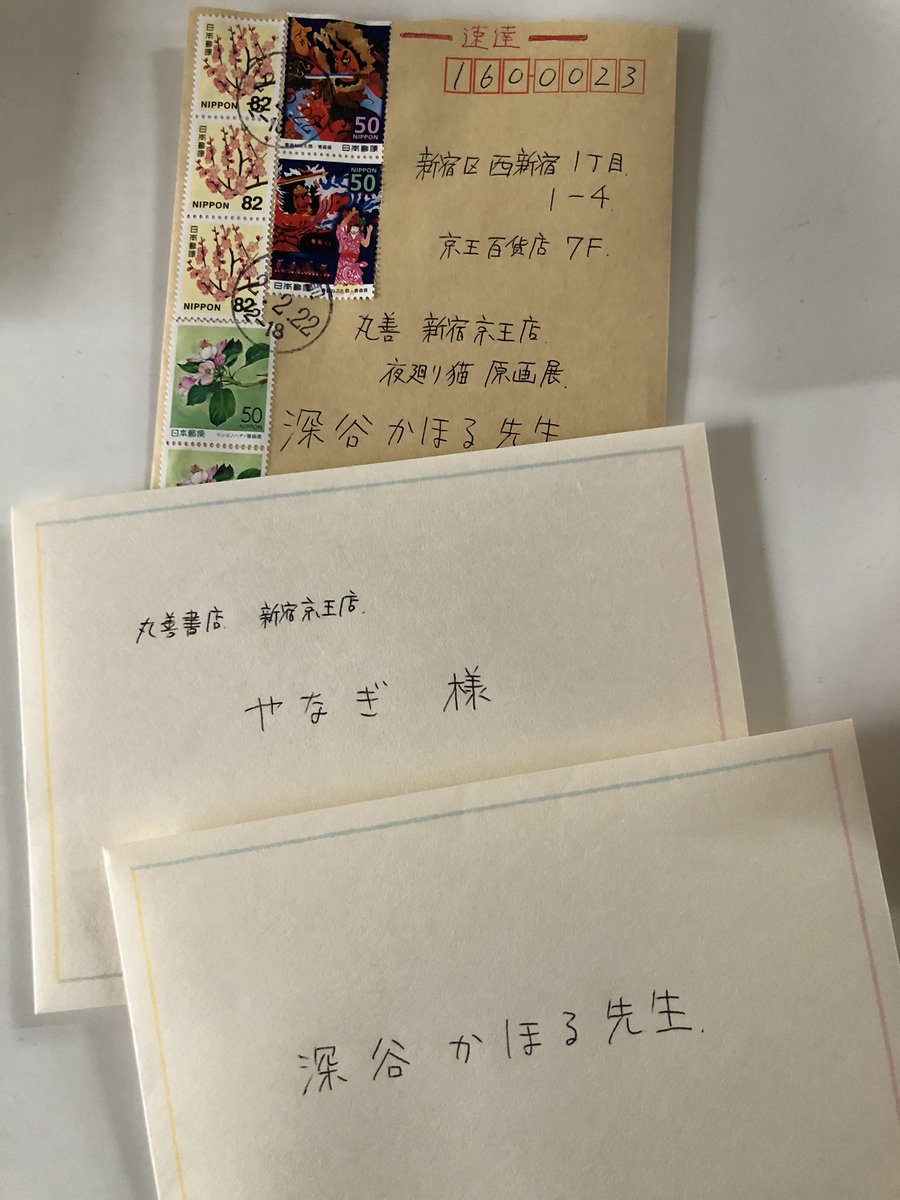 速達
1600023
新宿区 西新宿 1丁目
1-4
京王百貨店 7F.
丸善 新宿京王店.
夜廻り猫 原画展.
深谷かほる先生
日本郵便
NIPPON 82
日本郵便
NIPPON 82
日本郵便
NIPPON 82
50
NIPPON
日本郵便
NIPPON
50
日本郵便
2.22
18
50
日本郵便 リンゴノハナ・青森県
丸善書店. 新宿京王店.
やなぎ 様
深谷かほる先生.